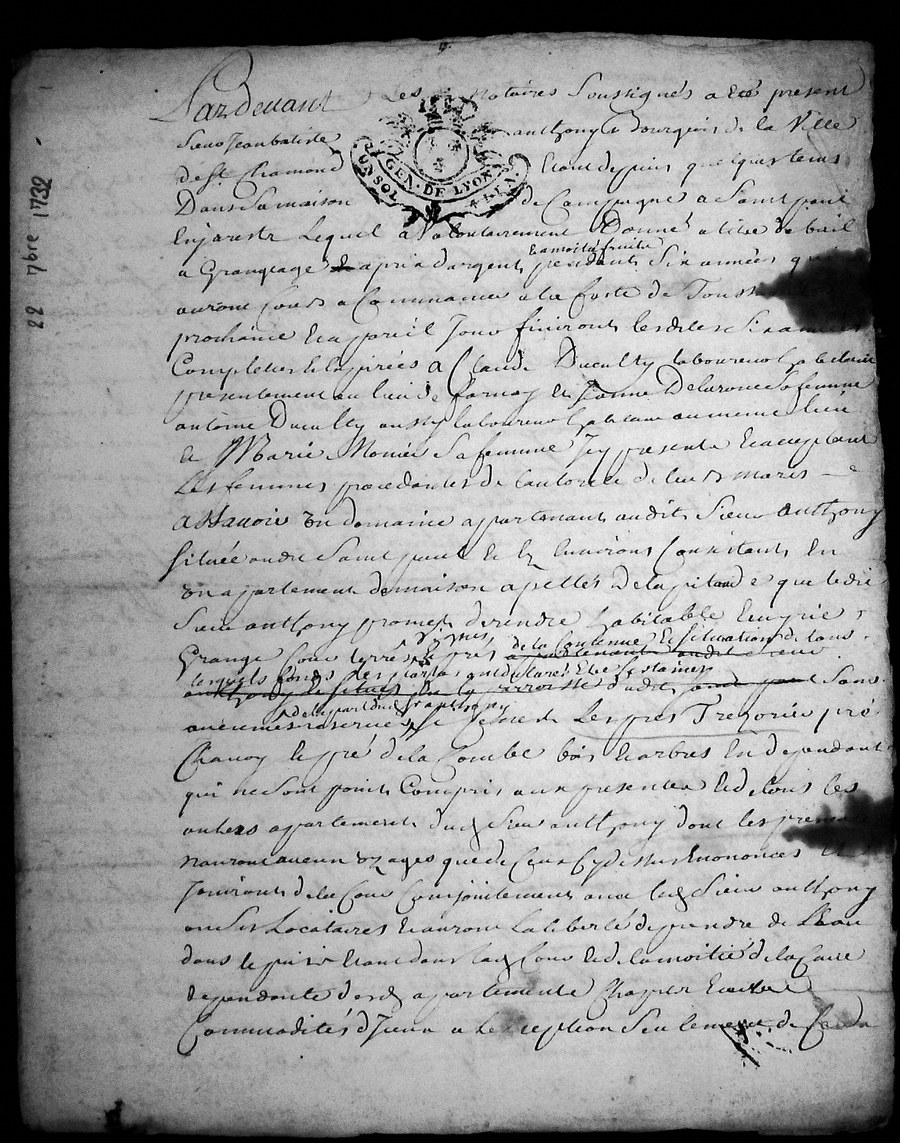 22 7bre 1732
Pardevant Les Notaires Soussignés a été present
Sieur Jean batiste anthony Bourgeois de la Ville
de St Chamond Etant depuis quelques tems
Dans Sa maison de Campagne a Saint paul
En jarest Lequel a Volontairement Donné a titre de bail
GEN. DE LYON
UN SOL
4 DEN
a Grangeage & a prix d'argent, a la moitié fruits pendant Six années qui
auront Cours a Commancer a la feste de Toussaint
prochaine Et a pareil Jour finiront lesdites Six années
Complettes & Expirées a Claude Duculty laboureur habitant
presentement au lieu de farnay et Janne Delaronce Sa femme
antoine Duculty aussy laboureur habitant au meme lieu
Et Marie Monier Sa femme Icy presents Et acceptant
Les femmes procedantes de l'autorité de leurs maris
a Scavoir Un domaine appartenant audit Sieur anthony
Située audit Saint paul Et Es Environs Consistant En
Un appartement de maison apellés de la pitaude que ledit
Sieur anthony promet de rendre habitable Ecurie
Grange Cour terres Vignes & prés de la Contenue Et Situation de tous
lesquels fonds les parties ont declarés Etre Certaines Sans
aucunes reserves de la part dud. Sr anthony Les prés Tregorié pré
Chavoy Le pré de la Combe bois Et arbres En dependant
qui ne Sont point Compris aux presentes Et de tous les
autres appartements dud. Sieur anthony dont les preneurs
n'auront aucun Usages que de Ceux Cy dessus Enoncés Et
Jouiront de la Cour Conjointement avec led. Sieur anthony
ou Ses Locataires Et auront La liberté de prendre de L'Eau
dans le puis Etant dans lad. Cour Et de la moitié de la Cave
dependante desd. appartements
Commodités d'Iceux a L'exception Seulement de